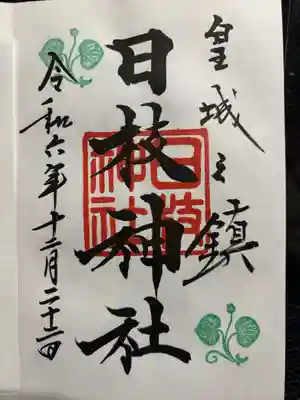 皇城之鎮
日枝神社
令和六年十二月二十二日
日枝
神社